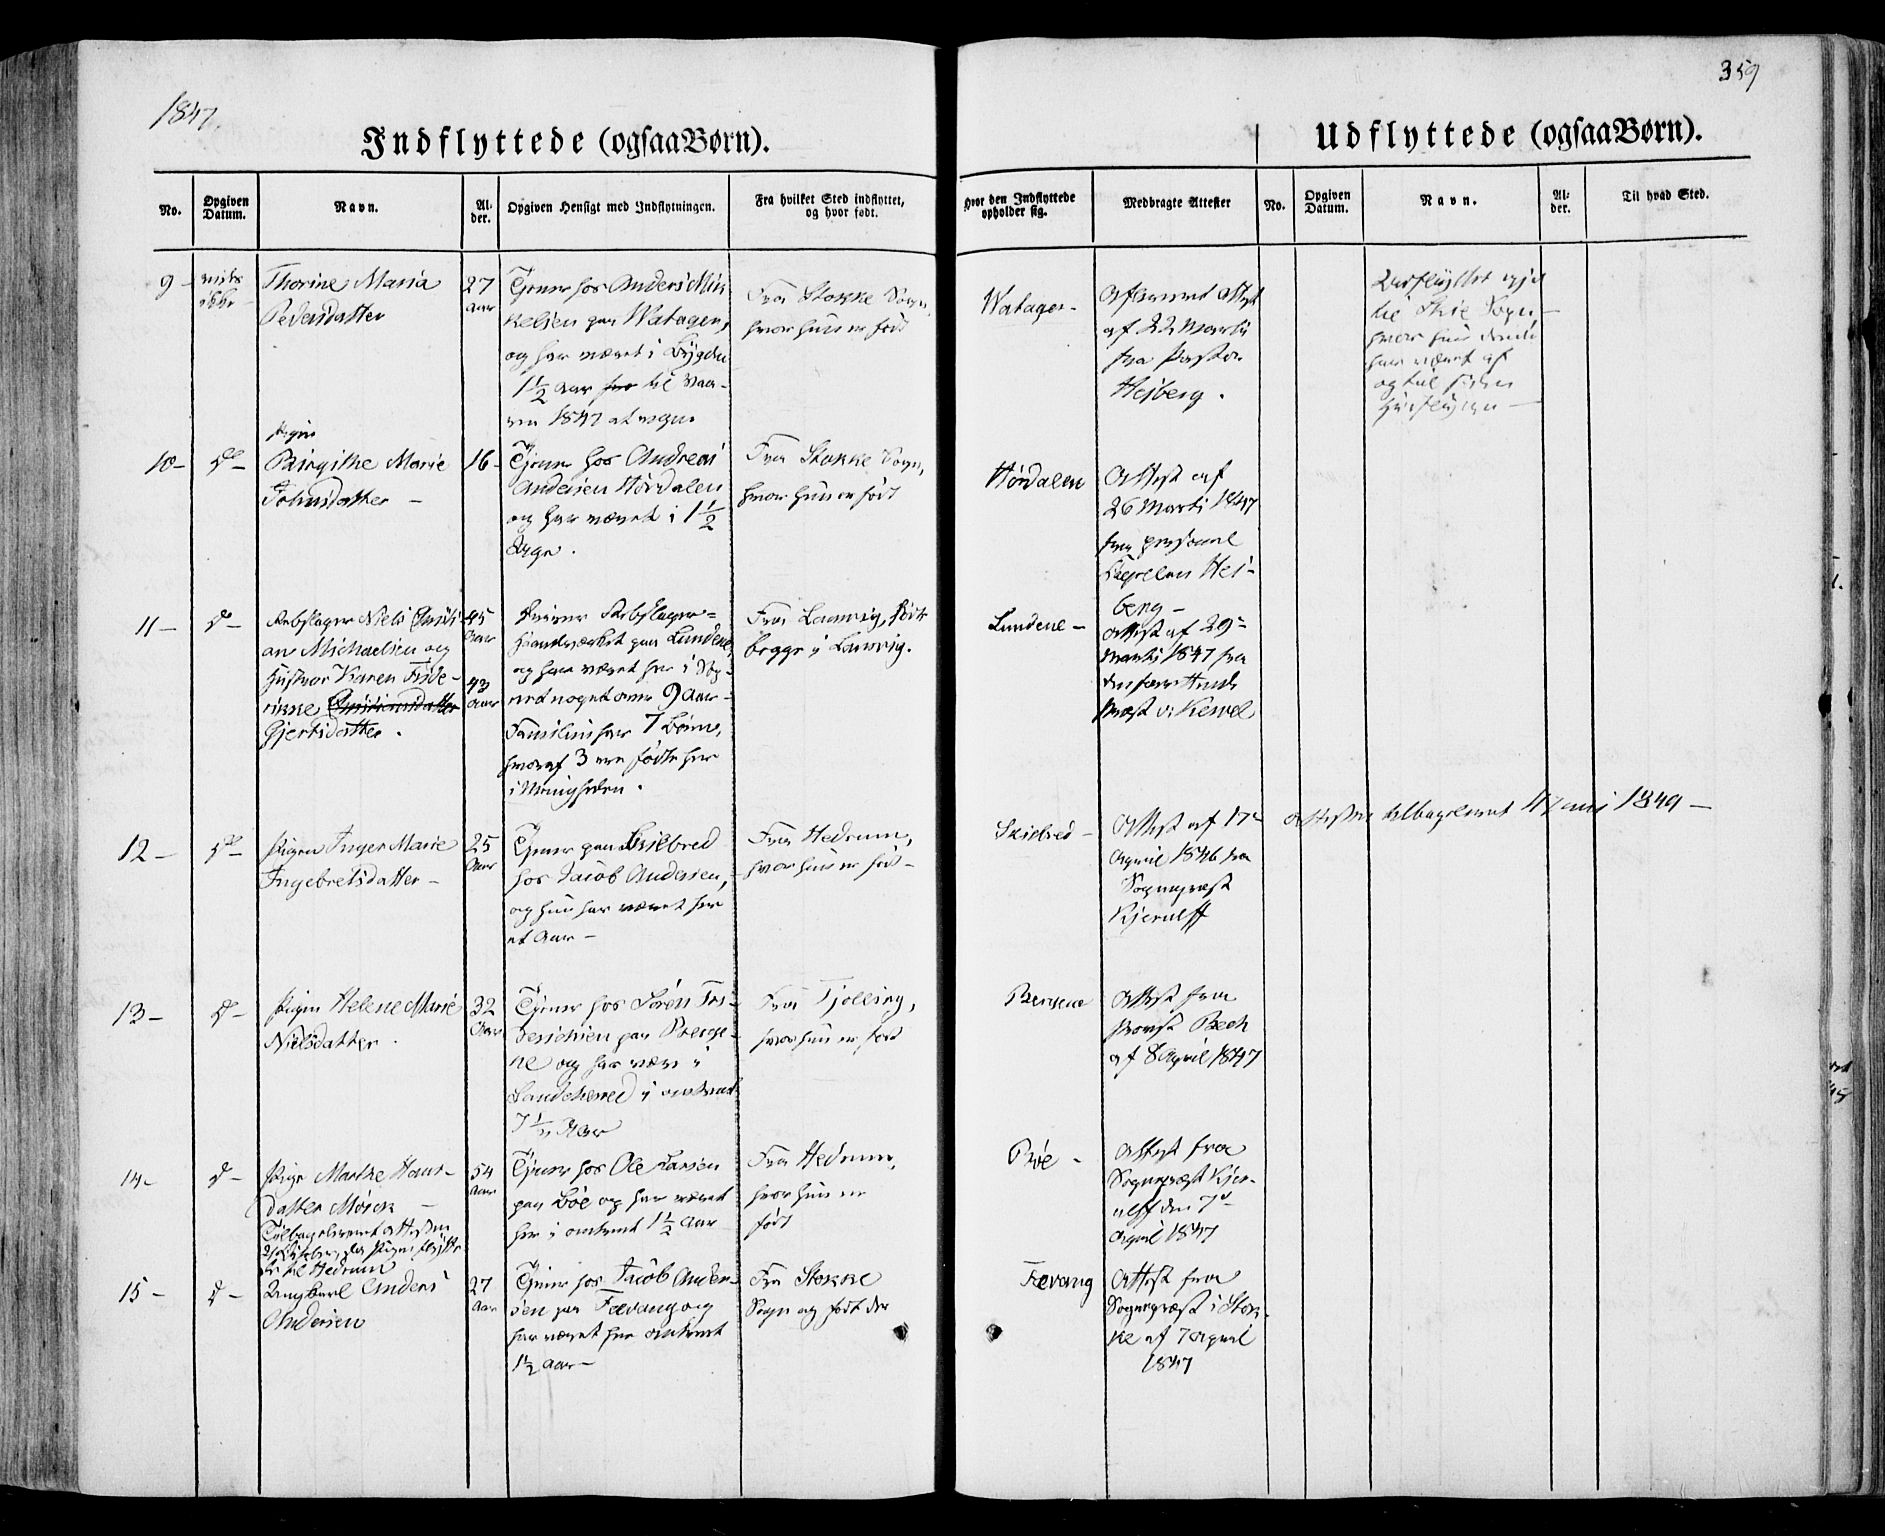 1847.
359
Indflyttede (ogsaa Børn).
Udflyttede (ogsaa Børn).
No.
Opgiven Datum.
Navn.
Al-
der.
Opgiven Hensigt med Indflytningen.
Fra hvilket Sted indflyttet,
og hvor født.
Hvor den Indflyttede
opholder sig.
Medbragte Attester
No.
Opgiven
Datum.
Navn.
Al-
der.
Til hvad Sted.
9 –
Thorine Maria
Pedersdatter
27
Aar
Tjener hos Anders Mik
kelsen paa Watager,
og har været i Bygden
1 1/2 Aar til Vaa-
ren 1847
Fra Stokke Sogn,
hvor hun er født
Watager –
Attest
af 22 Marti
fra Pastor
Heiberg.
Udflyttet
til Sogn –
hvor hun
har været
10 –
Do –
Pigen
Birgithe Marie
Johnsdatter –
16 –
Tjener hos Andreas
Andersen Hørdalen
og har været i 1 1/2
Fra Stokke Sogn,
hvor hun er født
Hørdalen
Attest af
26 Marti 1847
fra personel
Capellan Hei-
berg –
11 –
Do –
Rebslager Niels Christi
an Michaelsen og
Hustroe Karen Frede-
rikke Christiansdatter
Gjertsdatter.
45
Aar
43
Aar
Rebslager-
Haandværket paa Lundene,
og har været her i Sog-
net noget over 9 Aar –
Familien har 7 Børn,
hvoraf 3 ere fødte her
i Menigheden.
Fra Laurvig, født
begge i Laurvig.
Lundene –
Attest af 29
Marti 1847 fra
12 –
Do –
Pigen Inger Marie
Ingebretsdatter –
25
Aar
Tjener paa Skielbred
hos Jacob Andersen,
og hun har været her
et Aar –
Fra Hedrum,
hvor hun er født –
Skielbred –
Attest af 17
April 1846 fra
Sognepræst
Kjerulff
Attesten tilbageleveret 1849 –
13 –
Do –
Pigen Helene Marie
Nielsdatter.
32
Aar
Tjener hos Søren
paa Berge-
ne og har være i
Sandeherred i omtrent
7 1/2 Aar
Fra Tjølling,
hvor hun er født
Bergene
Attest fra
Provst Bech
af 8 April 1847
14 –
Do –
Pige Marthe Hans-
datter
Tilbageleveret Attesten
til Hedrum
54
Aar
Tjener hos Ole Larsen
paa Bøe og har været
her i omtrent 1 1/2 Aar
Fra Hedrum,
hvor hun er
født
Bøe –
Attest fra
Sognepræst Kjer-
ulff den 7
April 1847
15 –
Do –
Ungkarl Anders
Andersen
27
Aar
Tjener hos Jacob Ander-
sen paa Fævang og
har været her omtrent
1 1/2 Aar –
Fra Stokke
Sogn og født der
Fævang
Attest fra
Sognepræst i Stok-
ke af 7 April
1847